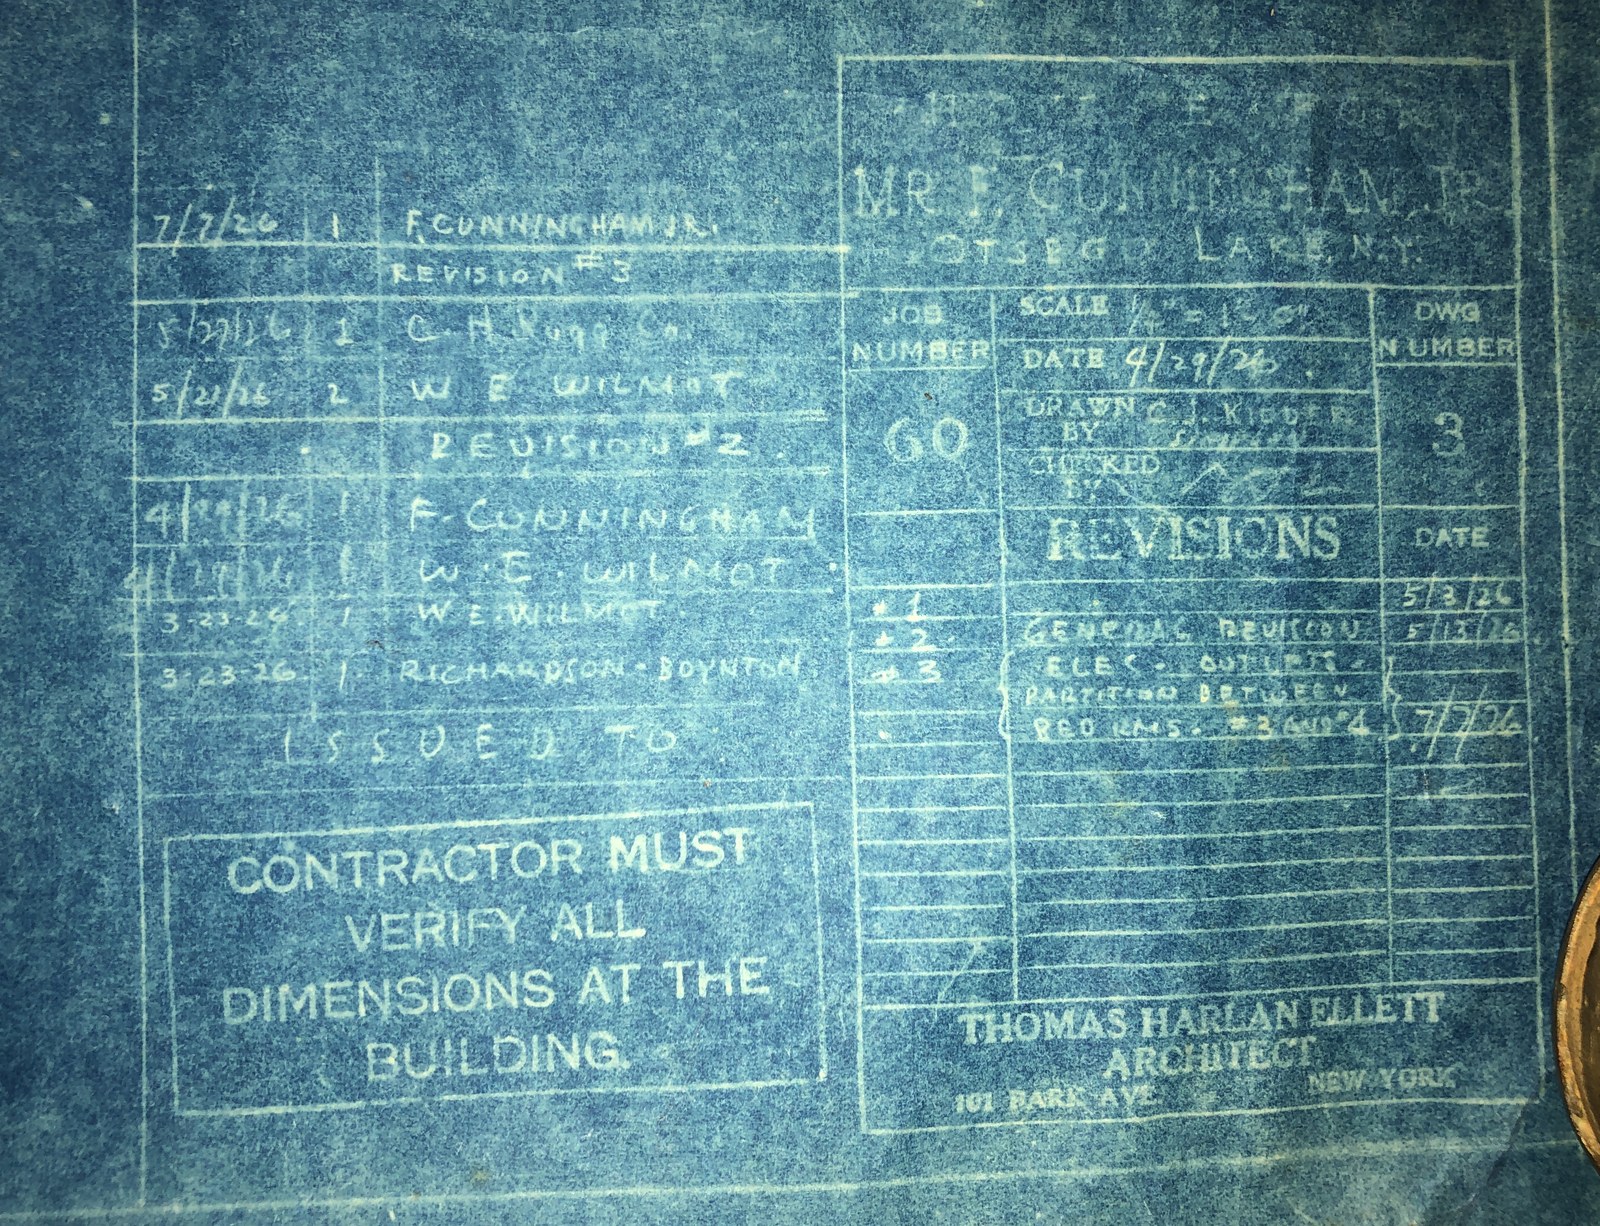 7/7/26 1 F. CUNNINGHAM JR.
REVISION #3
5/27/26 1 C. H. Rugg Co.
5/21/26 2 W E WILMOT
REVISION #2.
4/29/26 1 F. CUNNINGHAM
4/29/26 1 W. E. WILMOT
3-23-26. 1 W E. WILMOT
3-23-26. 1 RICHARDSON-BOYNTON
ISSUED TO
CONTRACTOR MUST
VERIFY ALL
DIMENSIONS AT THE
BUILDING.
MR. F. CUNNINGHAM, JR.
OTSEGO LAKE, N.Y.
JOB
NUMBER
60
SCALE 1/4" = 1'-0"
DATE 4/29/26.
DRAWN C. J. KIDDER
BY
CHECKED
BY
DWG
NUMBER
3
REVISIONS DATE
#1 5/3/26
#2 GENERAL REVISION 5/13/26
#3 ELEC. OUTLETS.
PARTITION BETWEEN
BED RMS. #3 AND #4 7/7/26
THOMAS HARLAN ELLETT
ARCHITECT
101 PARK AVE NEW YORK